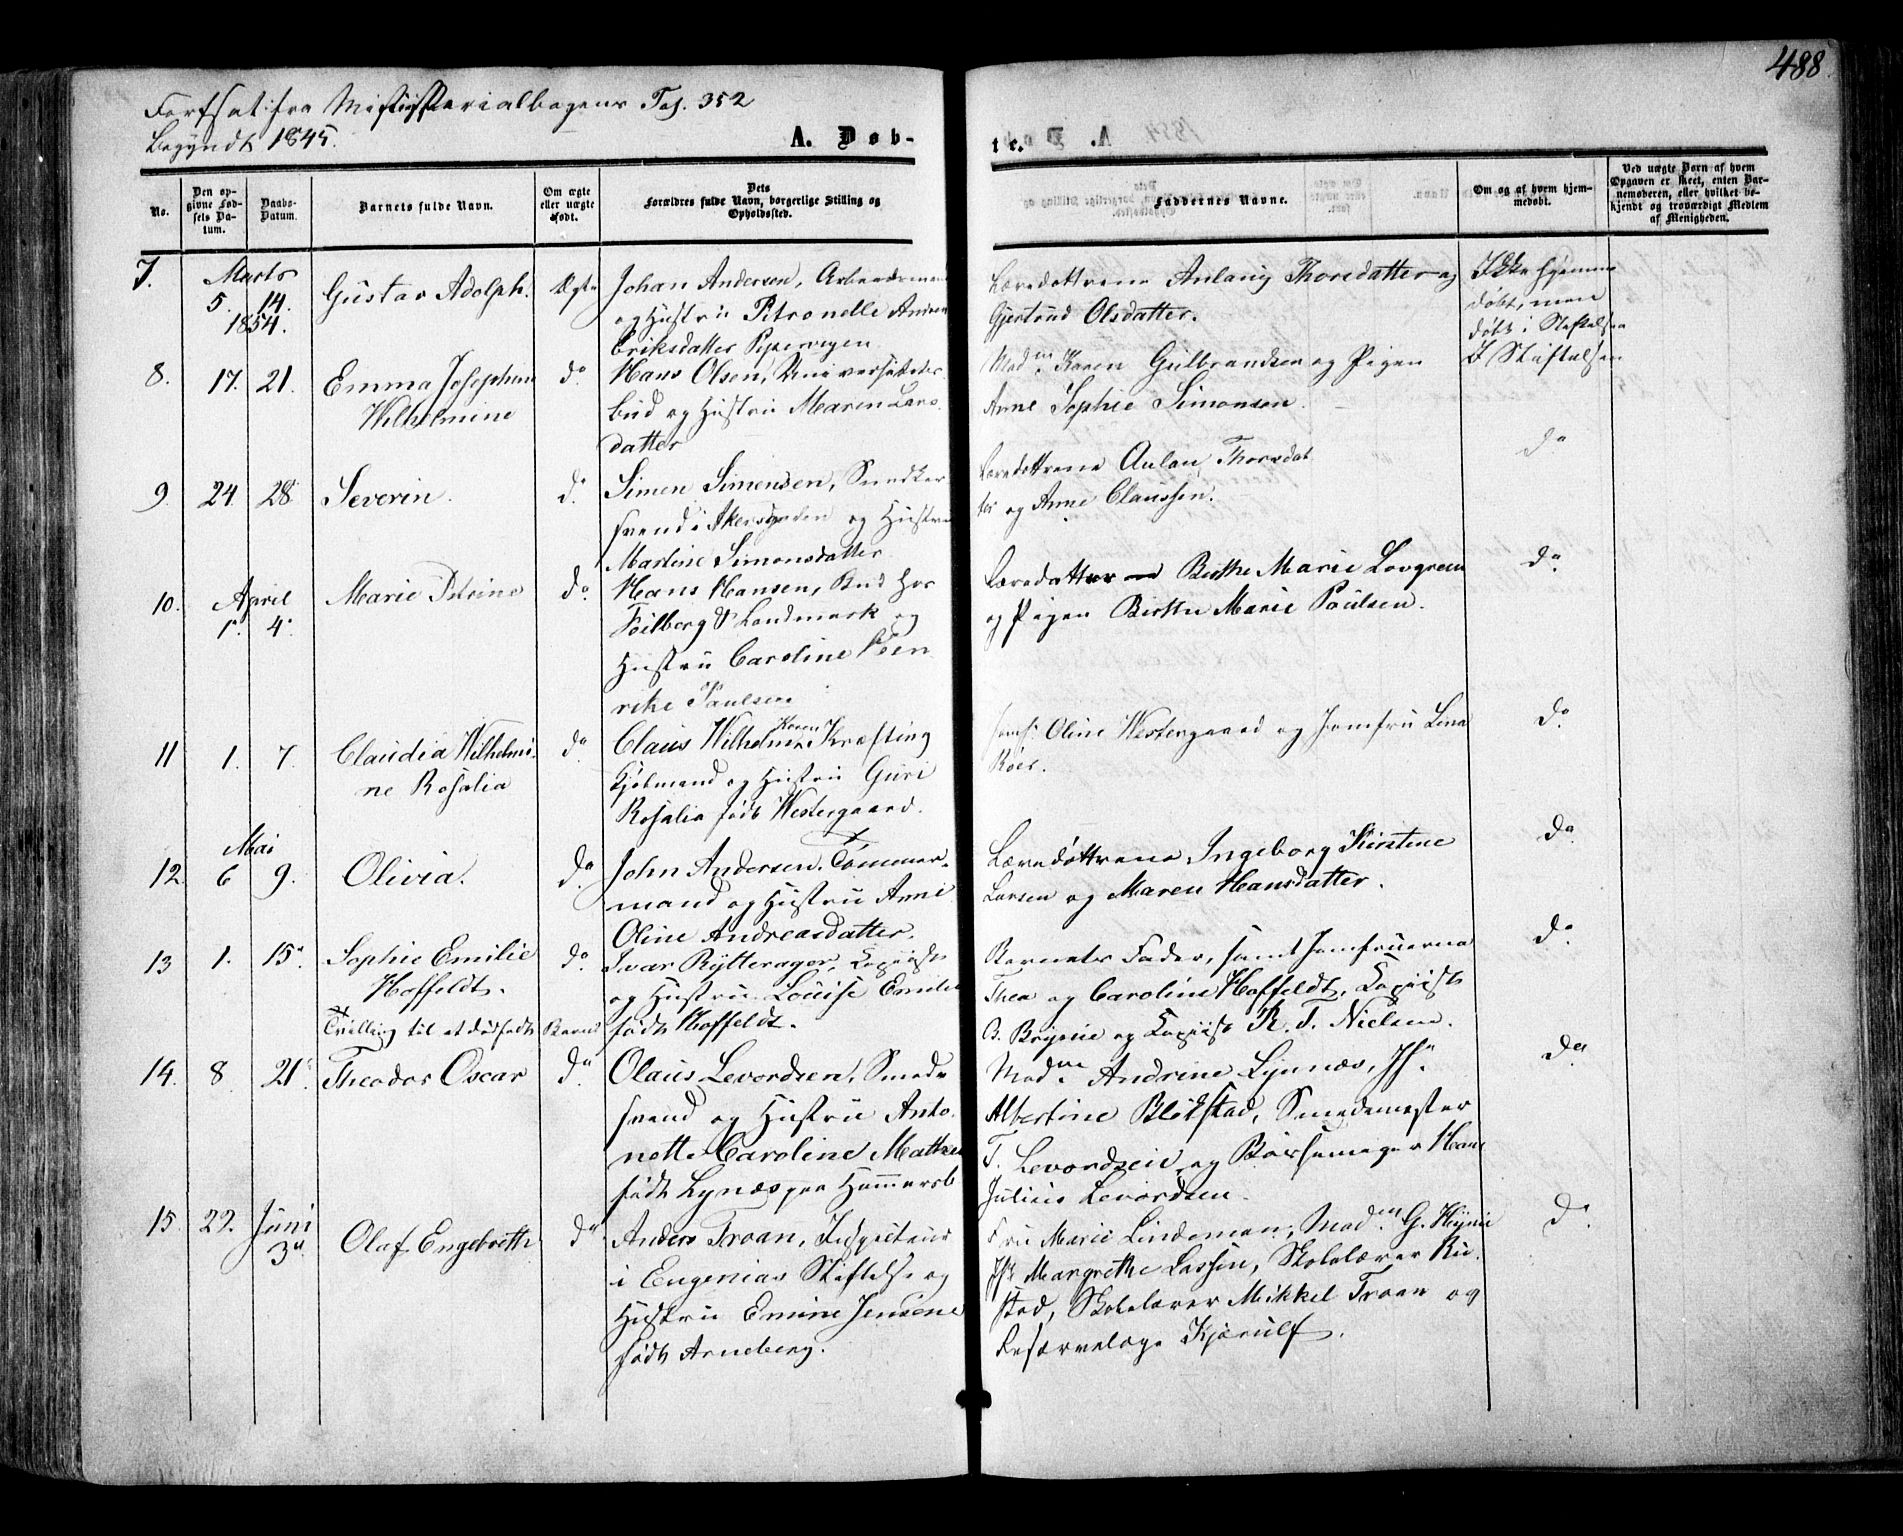 488
Fortsat fra Ministerialbogens Fol. 352
Begyndt 1845.
A. Døb-
te.
No.
Den op-
givne Fød-
sels Da-
tum.
Daabs-
Datum.
Barnets fulde Navn.
Om ægte
eller uægte
født.
Dets
Forældres fulde Navn, borgerlige Stilling og
Opholdssted.
Faddernes Navne.
Om og af hvem hjem-
medøbt.
Ved uægte Barn af hvem
Opgaven er skeet, enten Bar-
nemoderen, eller hvilket be-
kjendt og troværdigt Medlem
af Menigheden.
7.
Marts
5. 14.
1854.
Gustav Adolph.
Ægte
Johan Andersen, Arbeidsmand
og Hustru Petronelle Andrea
Eriksdatter Pipervigen
Læredøttrene Anlaug Thorsdatter og
Gjertrud Olsdatter.
Ikke hjemme
døbt, men
døbt i Stiftelsen
8. 17. 21.
Emma Josephine
Wilhelmine
do
Hans Olsen, Universitets-
bud og Hustru Maren Lars
datter
Madm Karen Gulbrandsen og Pigen
Anne Sophie Simonsen.
I Stiftelsen
9. 24 28
Severin.
do
Simen Simensen, Snedker
svend i Akersgaden og Hustru
Martine Simonsdatter
Læredøttrene Aulau Thorsdat
ter og Anne Claussen.
do
10.
April
1. 4.
Marie Petrine
do
Hans Hansen, Bud hos
Feilberg & Landmark og
Hustru Caroline Hen
rike Paulsen
Læredatter Birthe Marie Lovgreen
og Pigen Birthe Marie Paulsen.
do
11 1. 7.
Claudia Wilhelmi-
ne Rosalia
do
Karen
Claus Wilhelm Kræfting
Kjølmand og Hustru Guri
Rosalia født Westergaard.
Jomf. Oline Westergaard og Jomfru Lena
Röer.
do
12.
Mai
6 9.
Olivia.
do
John Andersen. Tømmer-
mand og Hustru Anne
Oline Andreasdatter.
Læredøttrene, Ingeborg Kirstine
Larsen og Maren Hansdatter.
do
13 1. 15.
Sophie Emilie
Hoffeldt.
Tvilling til et dødfødt Barn
do
Ivar Rytterager, Kopiist
og Hustru Louise Emilie
født Hoffeldt.
Barnets Fader, samt Jomfruerne
Thea og Caroline Hoffeldt, Kopiist
B. Brynie og Kopiist R. T. Nielsen.
do
14. 8 21
Theodor Oscar
do
Olaus Levordsen, Smede
svend og Hustru Anto-
nette Caroline Mathea
født Lynæs paa Hammersb
Madme Andrine Lynnæs, Jfr
Albertine Blikstad, Smedemester
T. Levordsen og Børsemager Hans
Julius Levordsen.
do
15. 22. Juni
3
Olaf Engebreth
do
Anders Troan, Inspecteur
i Eugenias Stiftelse og
Hustru Emine Jensene
født Arneberg.
Fru Marie Lindeman, Madm G. Heynie
Jfr Margrethe Lassen, Skolelærer Ru-
stad, Skolelærer Mikkel Troan og
Reservelæge Kjerulf.
do